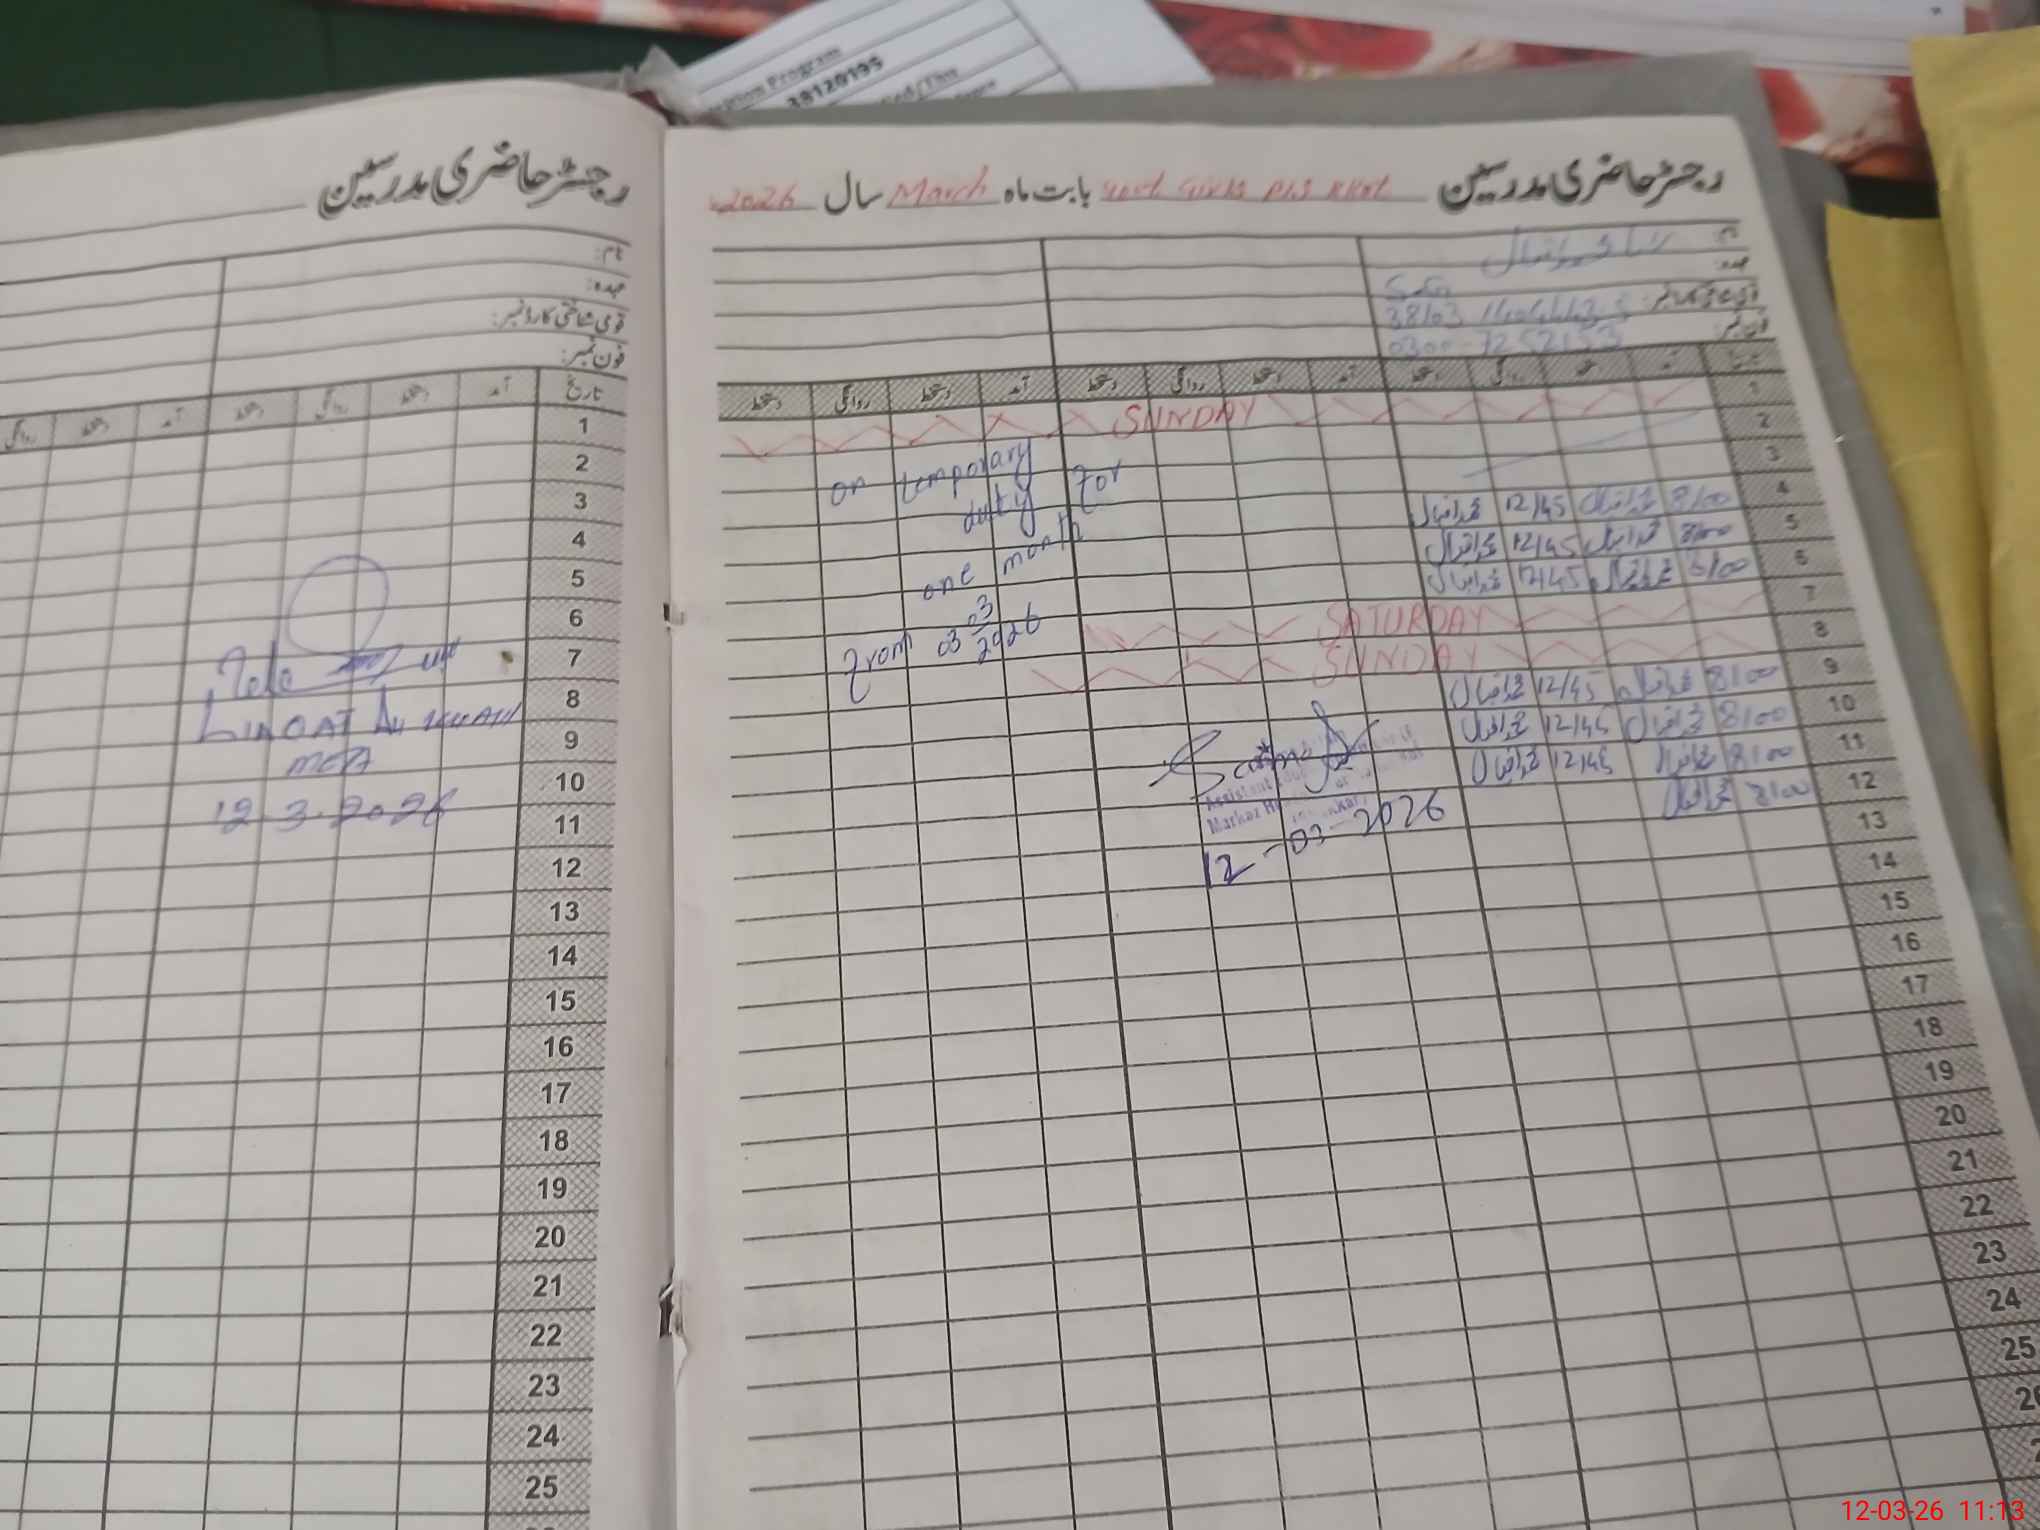 38120195
رجسٹر حاضری مدرسین
نام:
عہدہ:
قومی شناختی کارڈ نمبر:
فون نمبر:
تاریخ آمد دستخط روانگی دستخط آمد دستخط روانگی
1
2
3
4
5
6
7
8
9
10
11
12
13
14
15
16
17
18
19
20
21
22
23
24
25
LIAQAT Ali
MEA
12.3.2026
رجسٹر حاضری مدرسین Govt Girls P/S بابت ماہ March سال 2026
نام: محمد اقبال
عہدہ:
قومی شناختی کارڈ نمبر: 38103
فون نمبر: 0300-7252153
آمد دستخط روانگی دستخط آمد دستخط روانگی دستخط
1 SUNDAY
2
3
4 8/00 محمد اقبال 12/45 محمد اقبال
5 8/00 محمد اقبال 12/45 محمد اقبال
6 8/00 محمد اقبال 12/45 محمد اقبال
7 SATURDAY
8 SUNDAY
9 8/00 محمد اقبال 12/45 محمد اقبال
10 8/00 محمد اقبال 12/45 محمد اقبال
11 8/00 محمد اقبال 12/45 محمد اقبال
12 8/00 محمد اقبال
13
14
15
16
17
18
19
20
21
22
23
24
25
on temporary
duty for
one month
from 03 03 2026
Assistant
Markaz
12-03-2026
12-03-26 11:13